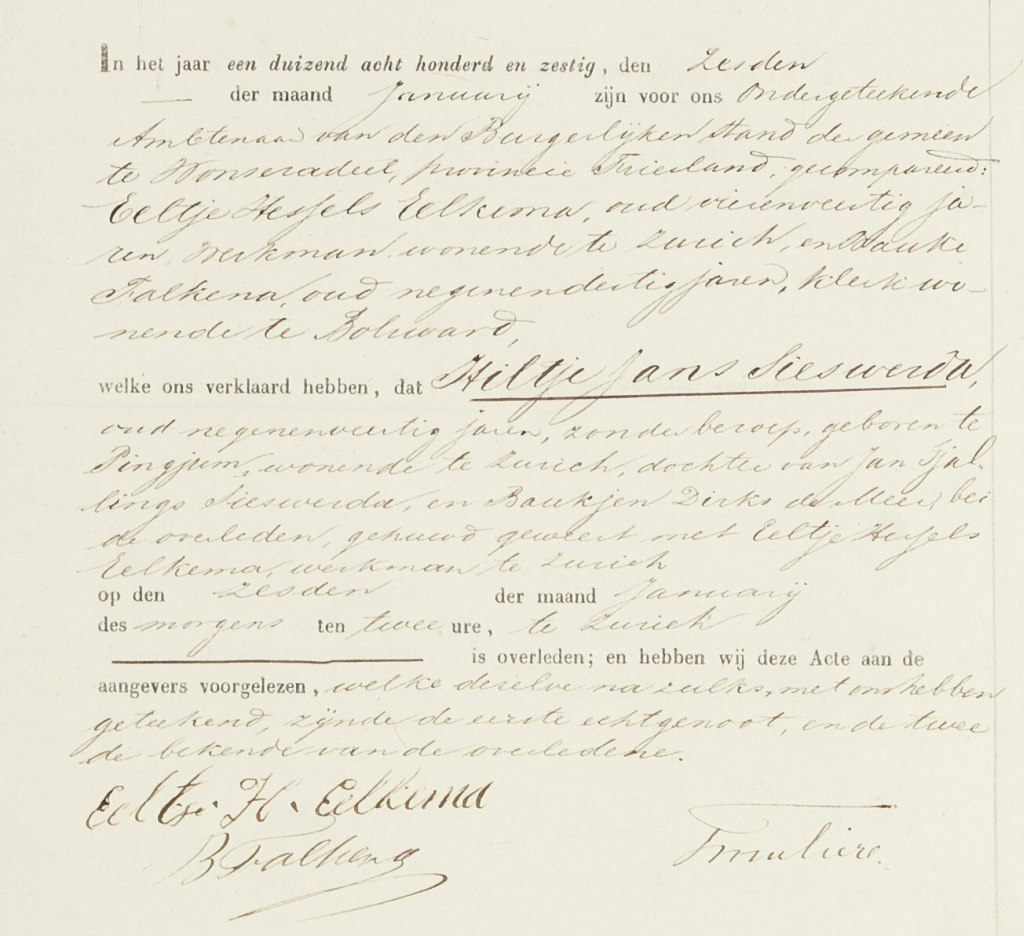 In het jaar een duizend acht honderd en zestig, den zesden
der maand Januarij zijn voor ons Ondergeteekende
Ambtenaar van den Burgerlijken stand der gemeen
te Wonseradeel, provincie Friesland, gecompareerd:
Eeltje Hessels Eelkema, oud vierenveertig ja-
ren, Werkman, wonende te Zurich, en Bauke
Falkena, oud negenendertig jaren, klerk wo-
nende te Bolsward,
welke ons verklaard hebben, dat Hiltje Jans Sieswerda,
oud negenenveertig jaren, zonder beroep, geboren te
Pingjum, wonende te Zurich, dochter van Jan Tjal-
lings Sieswerda, en Baukjen Dirks de Meer, bei
de overleden, gehuwd geweest met Eeltje Hessels
Eelkema, werkman te Zurich
op den zesden der maand Januarij
des morgens ten twee ure, te Zurich
is overleden; en hebben wij deze Acte aan de
aangevers voorgelezen, welke deselve na zulks, met ons hebben
geteekend, zijnde de eerste echtgenoot, en de twee
de bekende van de overledene.
Eeltje H. Eelkema
B Falkena